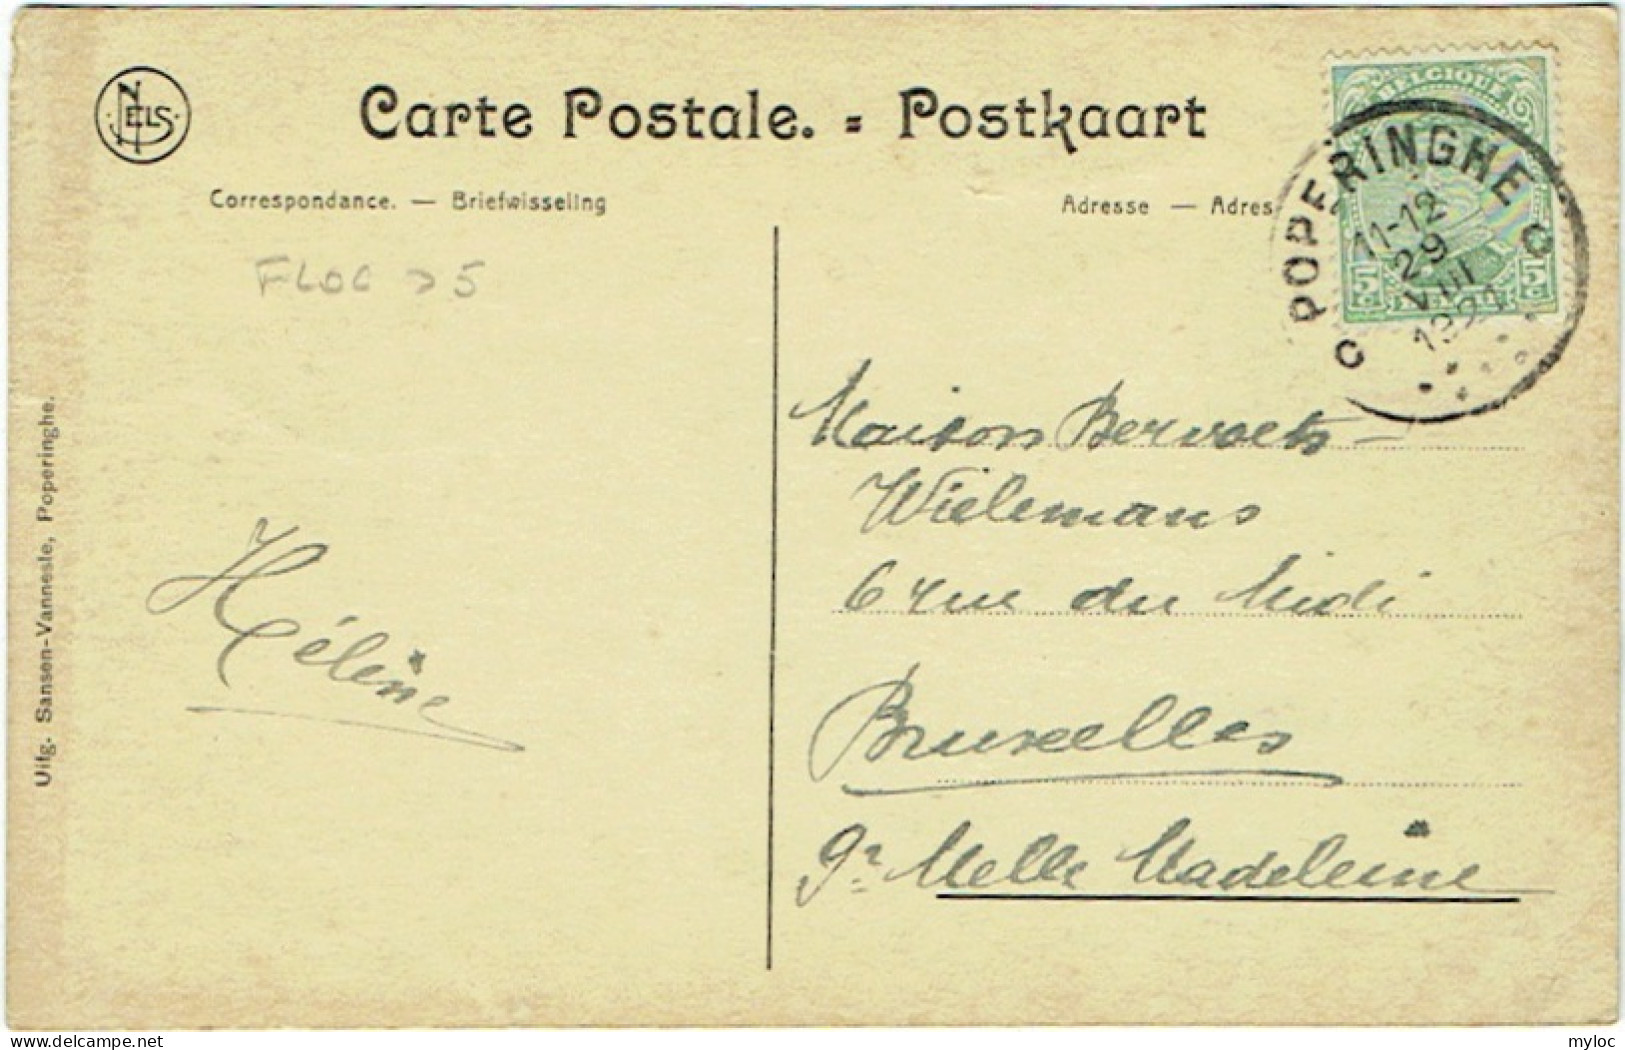 NELS
Carte Postale. = Postkaart
Correspondance. — Briefwisseling
Adresse — Adres
BELGIQUE
5c 5c
POPERINGHE
11-12
29
VIII
1921
C C
FLOC > 5
Maison Bervoets-
Wielemans
6 rue du Midi
Bruxelles
Melle Madeleine
Hélène
Uitg. Sansen-Vanneste, Poperinghe.
delcampe.net
myloc